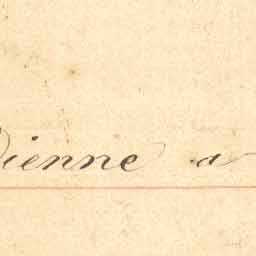 Vienne a